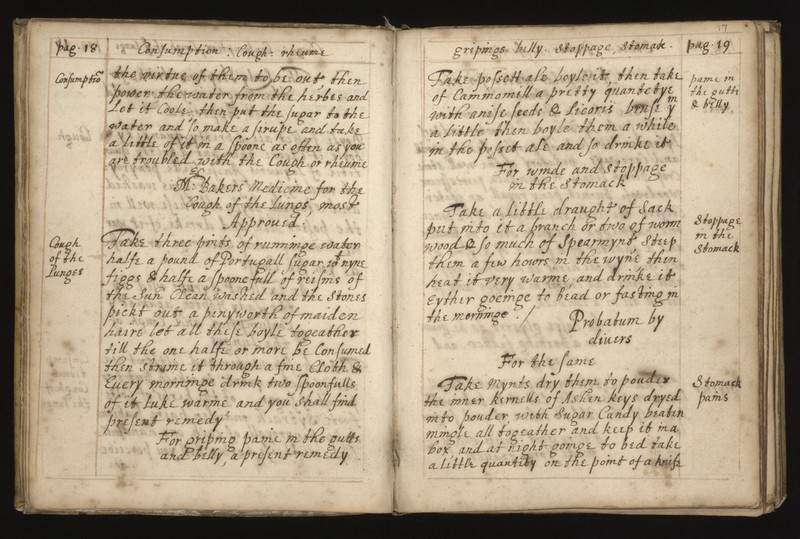 pag. 18
Consumption: Cough: rheume
Consumptiõ
the virtue of them to be out then
power the water from the herbes and
Let it Coole then put the sugar to the
water and so make a sirupe and take
a little of it in a spoone as often as you
are troubled with the Cough or rheume
Mr. Bakers Medicine for the
Cough of the Lungs, most
Approued.
Cough
of the
Lunges
Take three pints of runninge water
halfe a pound of Portugall sugar, wt nyne
figgs & halfe a spoone full of reisins of
the Sun Clean washed and the Stones
pickt out a pinyworth of maiden
haire let all these boyle togeather
till the one halfe or more be Consumed
then straine it through a fine Cloth &
Euery morninge drink two spoonfulls
of it luke warme and you shall find
present remedy
For griping paine in the gutts
and belly, a present remedy
17
gripings belly Stoppage Stomack.
pag. 19
Take possett ale boyle it, then take
of Cammomill a pretty quantetye
with anise seeds & Licoris bruse ym
a little then boyle them a while
in the possett ale and so drinke it
paine in
the gutts
& belly
For winde and Stoppage
in the Stomack
Take a little draught of Sack
put into it a branch or two of worm
wood & so much of Spearmynt Steep
them a few howrs in the wyne then
heat it very warme and drinke it
Eyther goeinge to bead or fasting in
the morninge /
Stoppage
in the
Stomack
Probatum by
diuers
For the same
Take Mynts dry them to pouder
the inner kernells of Ashen keys dryed
into pouder, with Sugar Candy beaten
mingle all togeather and keep it in a
box, and at night goinge to bed take
a little quantity on the point of a knife
Stomack
pains